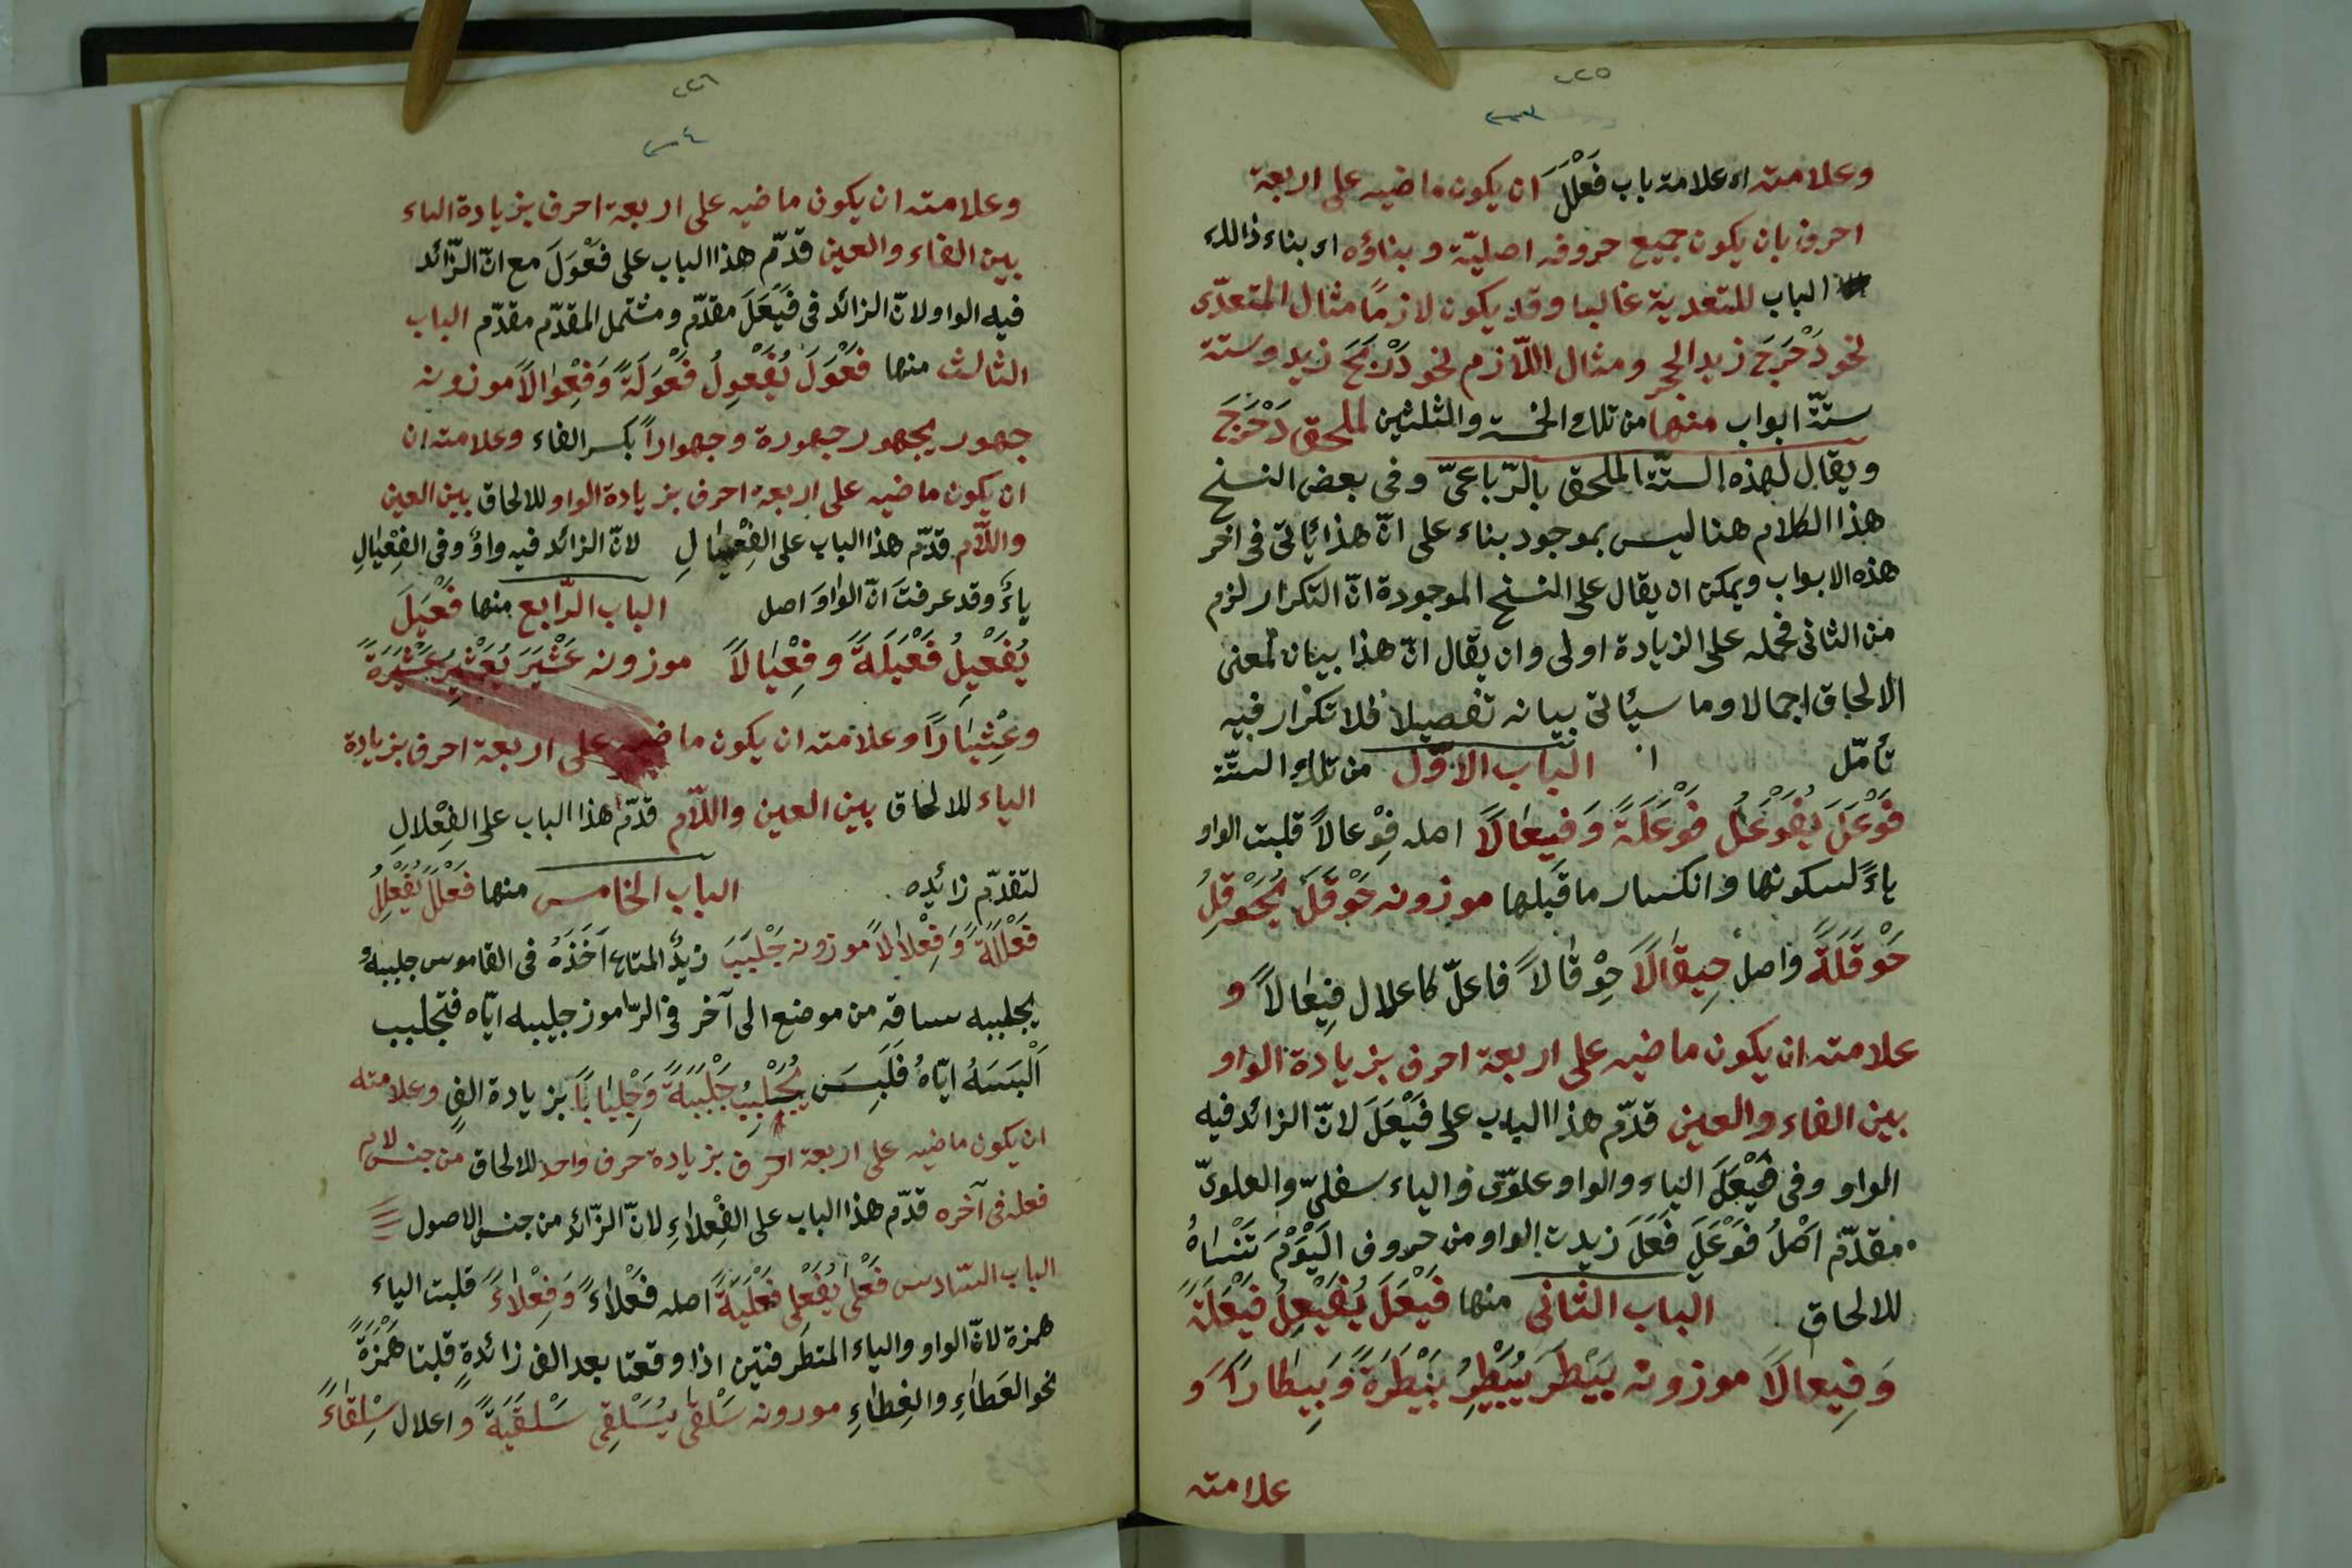 ٢٢٥
٢٠٣
وعلامته اى علامة باب فَعْلَلَ ان يكون ماضيه على اربعة
احرف بان يكون جميع حروفه اصليّة وبناؤه اى بناء ذالك
الباب للتعدية غالبا وقد يكون لازمًا مثال المتعدّى
نحو دَحْرَجَ زيد الحجر ومثال اللّازم نحو دَرْبَحَ زيد وستة
ستّة ابواب منها من تلك الخمسة والثلثين لملحق دَحْرَجَ
ويقال لهذه الستّة الملحق بالرّباعىّ وفى بعض النسخ
هذا الكلام هنا ليس بموجود بناء على انّ هذا يأتى فى اخر
هذه الابواب ويمكن ان يقال على النسخ الموجودة انّ التكرار لزم
من الثانى فحمله على الزيادة اولى وان يقال انّ هذا بيان لمعنى
الالحاق اجمالا وما سيأتى بيانه تفصيلا فلا تكرار فيه
تأمّل الباب الاوّل من تلك الستّة
فَوْعَلَ يُفَوْعِلُ فَوْعَلَةً وَفيعَالًا اصله فِوْعالاً قلبت الواو
ياءً لسكونها وانكسار ما قبلها موزونه حَوْقَلَ يُحَوْقِلُ
حَوْقَلَةً واصل حِيقَالًا حِوْقَالاً فاعلّ كاعلال فِيعَالاً و
علامته ان يكون ماضيه على اربعة احرف بزيادة الواو
بين الفاء والعين قدّم هذا الباب على فَيْعَلَ لانّ الزائد فيه
الواو وفى فَيْعَلَ الياء والواو علوّى والياء سفلىّ والعلوىّ
مقدّم اَصْلُ فَوْعَلَ فَعَلَ زيدت الواو من حروف اَلْيَوْمَ تَنْسَاهُ
للالحاق الباب الثانى منها فَيْعَلَ يُفَيْعِلُ فَيْعَلَةً
وَفِيعالًا موزونه بَيْطَرَ يُبَيْطِرُ بَيْطَرَةً وَبِيطَارًا وَ
علامته
٢٢٦
٢٠٤
وعلامته ان يكون ماضيه على اربعة احرف بزيادة الياء
بين الفاء والعين قدّم هذا الباب على فَعْوَلَ مع انّ الزّائد
فيه الواو لانّ الزائد فى فَيْعَلَ مقدّم ومشتمل المقدّم مقدّم الباب
الثالث منها فَعْوَلَ يُفَعْوِلُ فَعْوَلَةً وَفِعْوَالاً موزونه
جهور يجهور جهورة وجهواراً بكسر الفاء وعلامته ان
ان يكون ماضيه على اربعة احرف بزيادة الواو للالحاق بين العين
واللّام قدّم هذا الباب على الفِعْيَالِ لانّ الزائد فيه واوٌ وفى الفِعْيَالِ
ياءٌ وقد عرفتَ انّ الواوَ اصل الباب الرّابع منها فَعْيَلَ
يُفَعْيِلُ فَعْيَلَةً وفِعْيَالاً موزونه عَثْيَرَ يُعَثْيِرُ عَثْيَرَةً
وعِثْيَارًا وعلامته ان يكون ماضيه على اربعة احرف بزيادة
الياء للالحاق بين العين واللّام قدّم هذا الباب على الفِعْلالِ
لتقدّم زائده الباب الخامس منها فَعْلَلَ يُفَعْلِلُ
فَعْلَلَةً وَفِعْلالاً موزونه جَلْبَبَ زيدٌ المتاع اَخَذَهُ فى القاموس جلببهُ
يجلببه ساقه من موضع الى آخر فى الرّاموز جلببه ايّاه فتجلبب
اَلْبَسَهُ ايّاهُ فَلَبِسَ يُجَلْبِبُ جَلْبَبَةً وَجِلْبَابًا بزيادة الف وعلامته
ان يكون ماضيه على اربعة احرف بزيادة حرف واحد للالحاق من جنس لام
فعله فى آخره قدّم هذا الباب على الفِعْلاءِ لانّ الزّائد من جنس الاصول
الباب السّادس فَعْلَى يُفَعْلِى فَعْلَيَةً اصله فَعْلاءً وَفِعْلاءً قلبت الياء
همزة لانّ الواو والياء المتطرفتين اذا وقعتا بعد الف زائدةٍ قلبتا هَمْزَةً
نحو العَطاءِ والغِطاءِ موزونه سَلْقَى يُسَلْقِى سَلْقَيَةً واعلال سِلْقَاءً